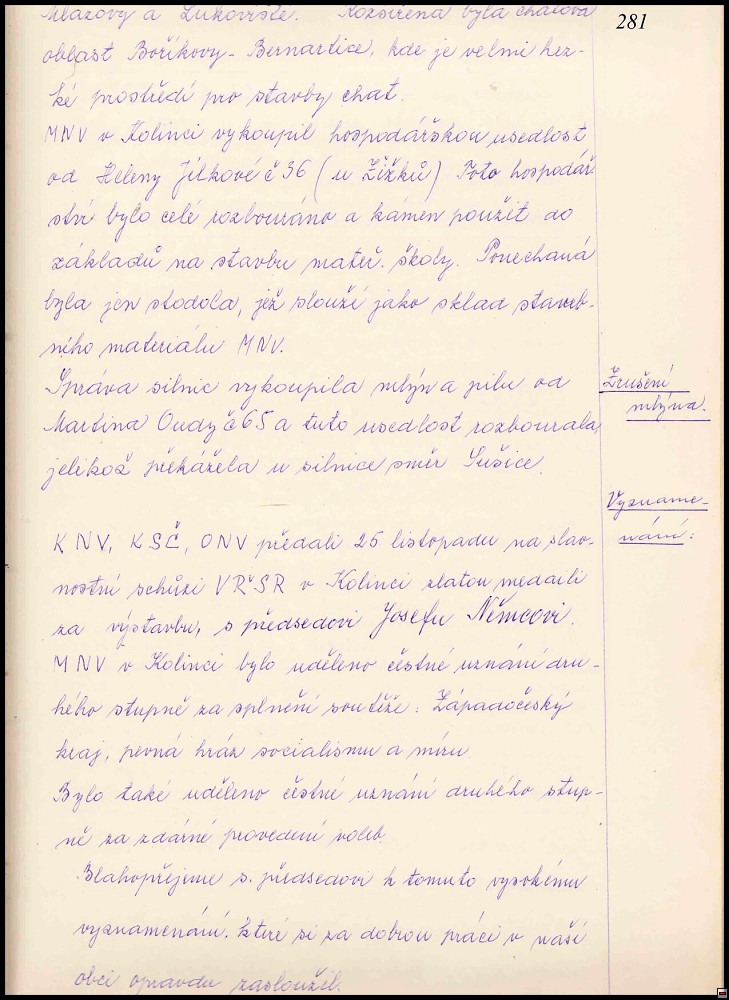 Mlázovy a Lukoviště. Rozšířena byla chatová
281
oblast Boříkovy - Bernartice, kde je velmi hez-
ké prostředí pro stavby chat.
MNV v Kolinci vykoupil hospodářskou usedlost
od Heleny Jílkové č 36 (u Žižků) Toto hospodář-
ství bylo celé rozbouráno a kámen použit do
základů na stavbu mateř. školy. Ponechaná
byla jen stodola, jež slouží jako sklad staveb-
ního materiálu MNV.
Správa silnic vykoupila mlýn a pilu od
Zrušení
Martina Oudy č 65 a tuto usedlost rozbourala,
mlýna.
jelikož překážela u silnice směr Sušice.
Vyzname-
nání:
KNV, KSČ, ONV předali 25 listopadu na slav-
nostní schůzi VŘSR v Kolinci zlatou medaili
za výstavbu, s předsedovi Josefu Němcovi.
MNV v Kolinci bylo uděleno čestné uznání dru-
hého stupně za splnění soutěže: Západočeský
kraj, pevná hráz socialismu a míru.
Bylo také uděleno čestné uznání druhého stup-
ně za zdárné provedení voleb.
Blahopřejeme s. předsedovi k tomuto vysokému
vyznamenání. které si za dobrou práci v naší
obci opravdu zasloužil.